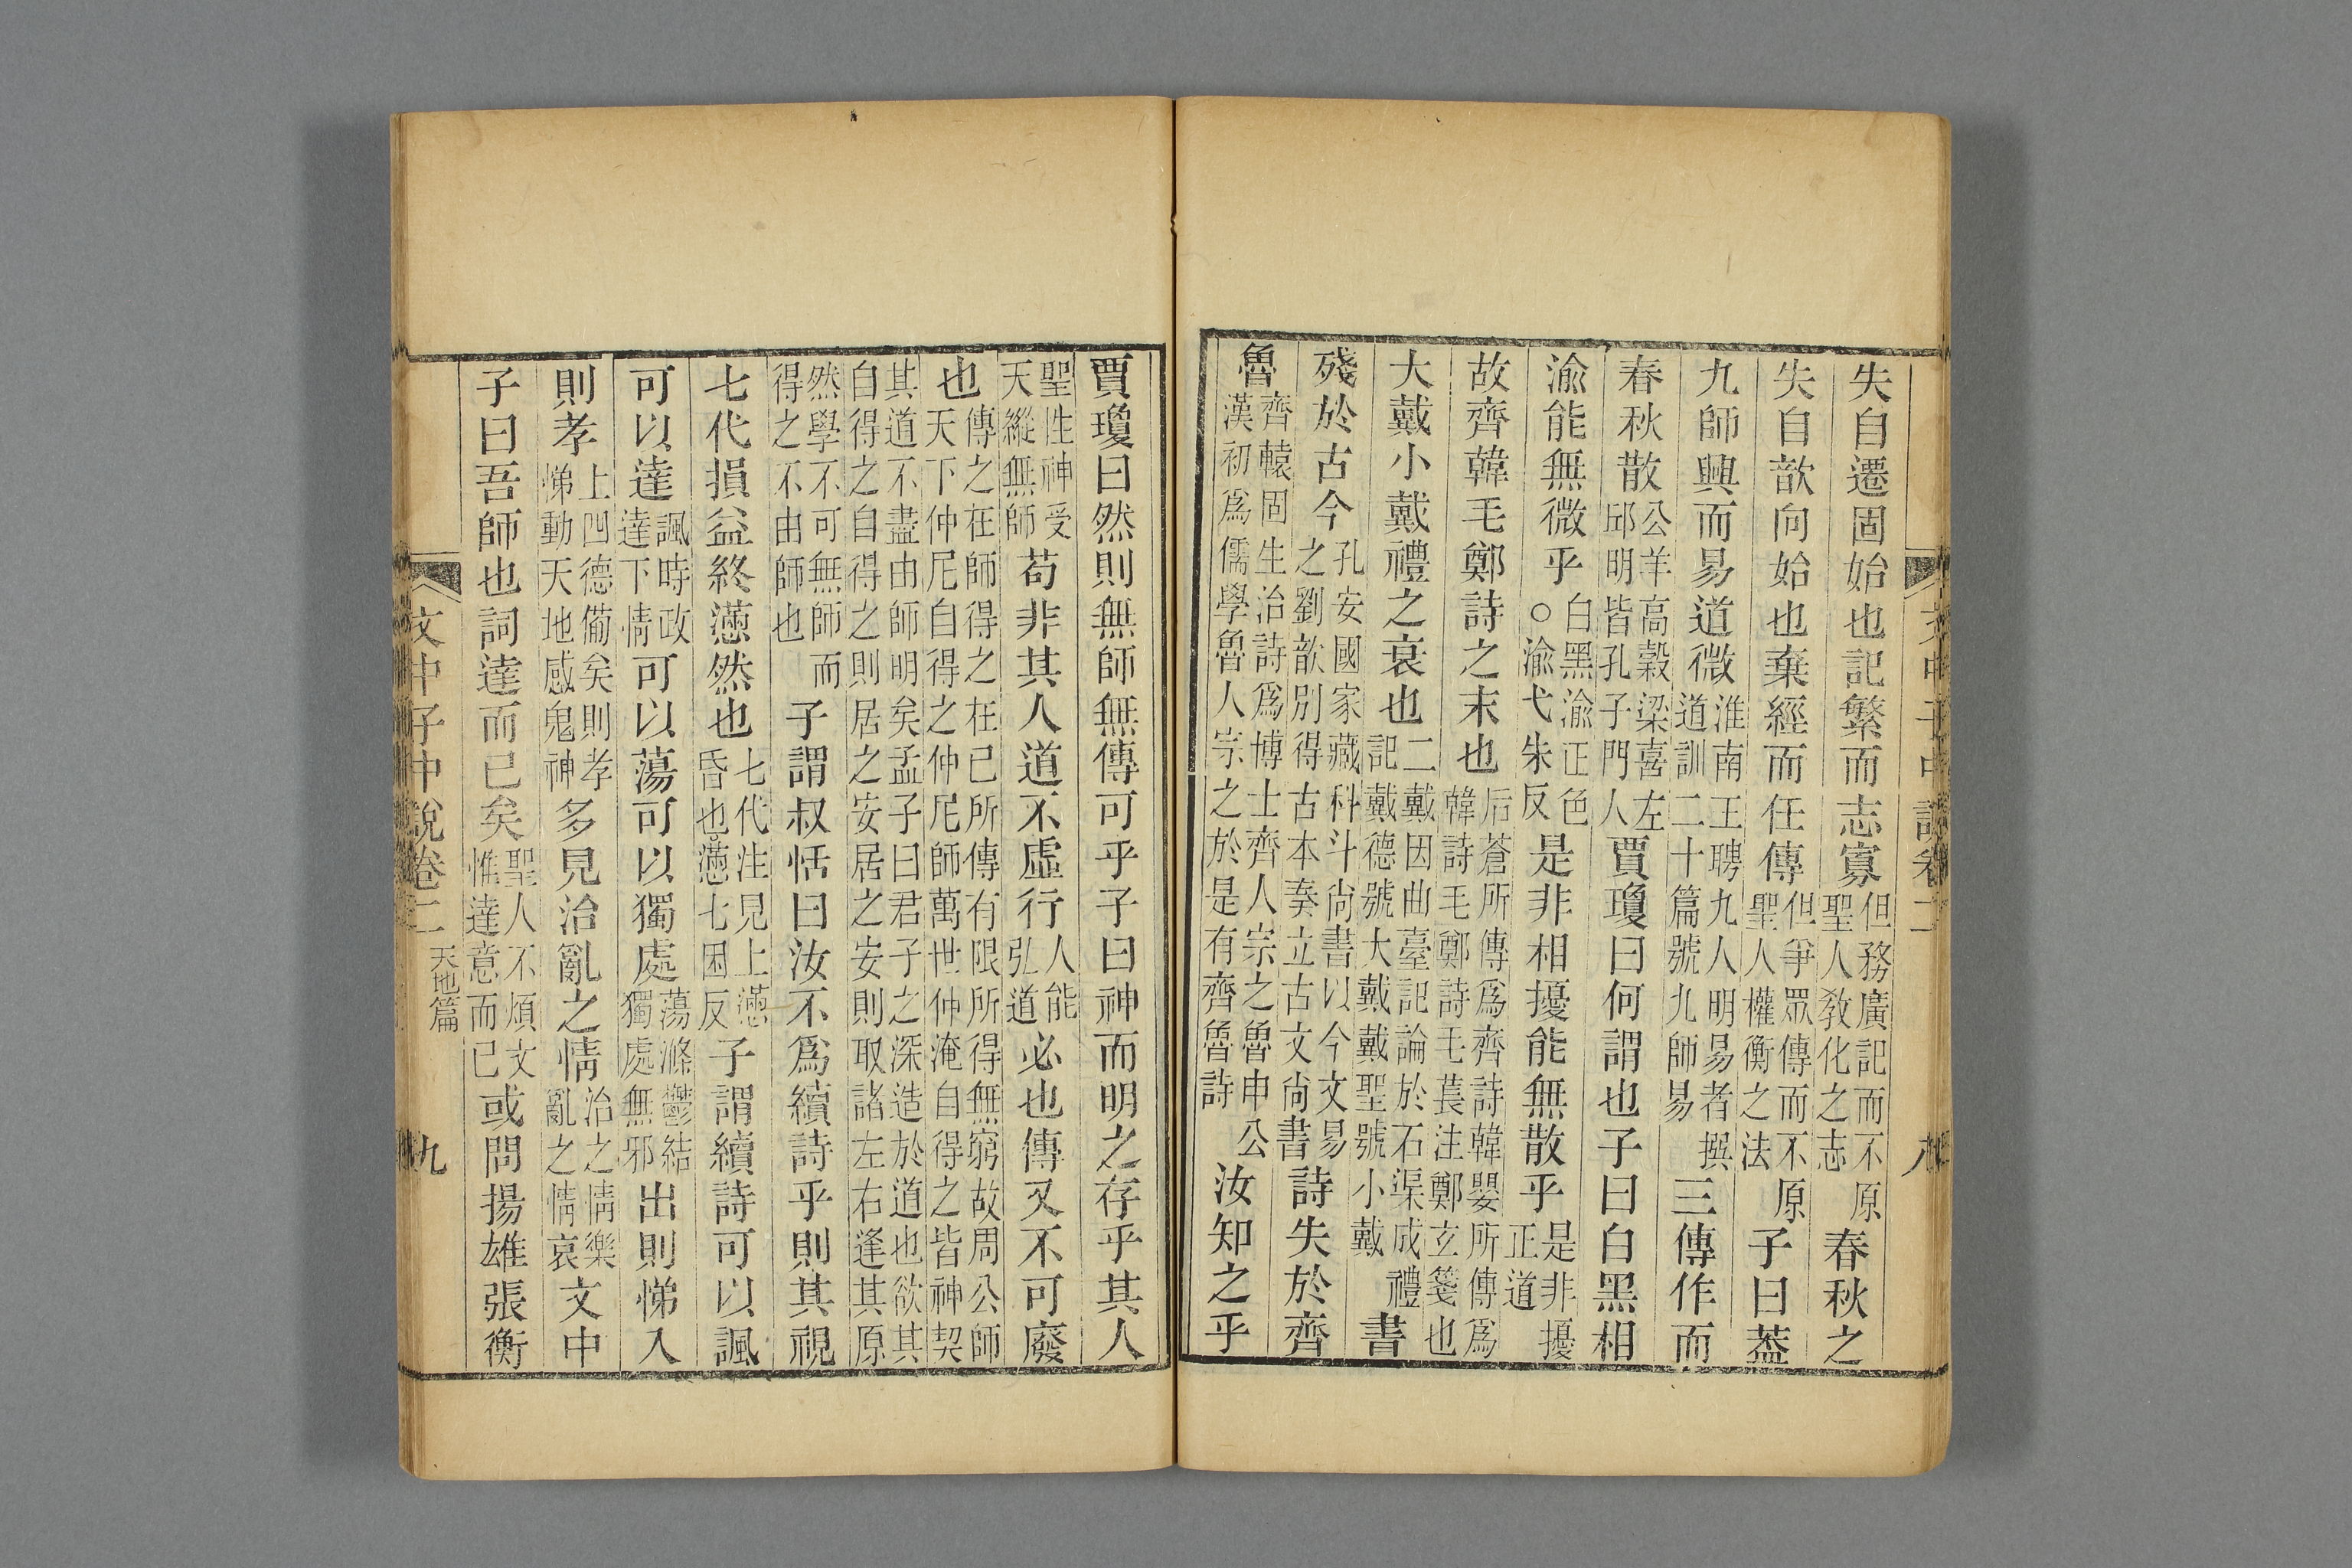 文中子中說卷二
八
失自遷固始也記繁而志寡但務廣記而不原聖人敎化之志春秋之
失自歆向始也棄經而任傳但爭眾傳而不原聖人權衡之法子曰葢
九師興而易道微淮南王聘九人明易者撰道訓二十篇號九師易三傳作而
春秋散公羊高穀梁喜左邱明皆孔子門人賈瓊曰何謂也子曰白黑相
渝能無微乎白黑渝正色○渝弋朱反是非相擾能無散乎是非擾正道
故齊韓毛鄭詩之末也后蒼所傳爲齊詩韓嬰所傳爲韓詩毛鄭詩毛萇注鄭玄箋也
大戴小戴禮之衰也二戴因曲臺記論於石渠成禮記戴德號大戴戴聖號小戴書
殘於古今孔安國家藏科斗尚書以今文易之劉歆別得古本奏立古文尚書詩失於齊
魯齊轅固生治詩爲博士齊人宗之魯申公漢初爲儒學魯人宗之於是有齊魯詩汝知之乎
賈瓊曰然則無師無傳可乎子曰神而明之存乎其人
聖性神受天縱無師苟非其人道不虛行人能弘道必也傳又不可廢
也傳之在師得之在已所傳有限所得無窮故周公師天下仲尼自得之仲尼師萬世仲淹自得之皆神契
其道不盡由師明矣孟子曰君子之深造於道也欲其自得之自得之則居之安居之安則取諸左右逢其原
然學不可無師而得之不由師也子謂叔恬曰汝不爲續詩乎則其視
七代損益終懣然也七代注見上懣昏也。懣七困反子謂續詩可以諷
可以達諷時政達下情可以蕩可以獨處蕩滌鬱結獨處無邪出則悌入
則孝上四德備矣則孝悌動天地感鬼神多見治亂之情治之情樂亂之情哀文中
子曰吾師也詞達而已矣聖人不煩文惟達意而已或問揚雄張衡
文中子中說卷二
天地篇
九